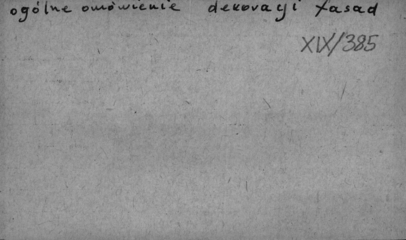 ogólne omówienie dekoracji fasad
XIX/385